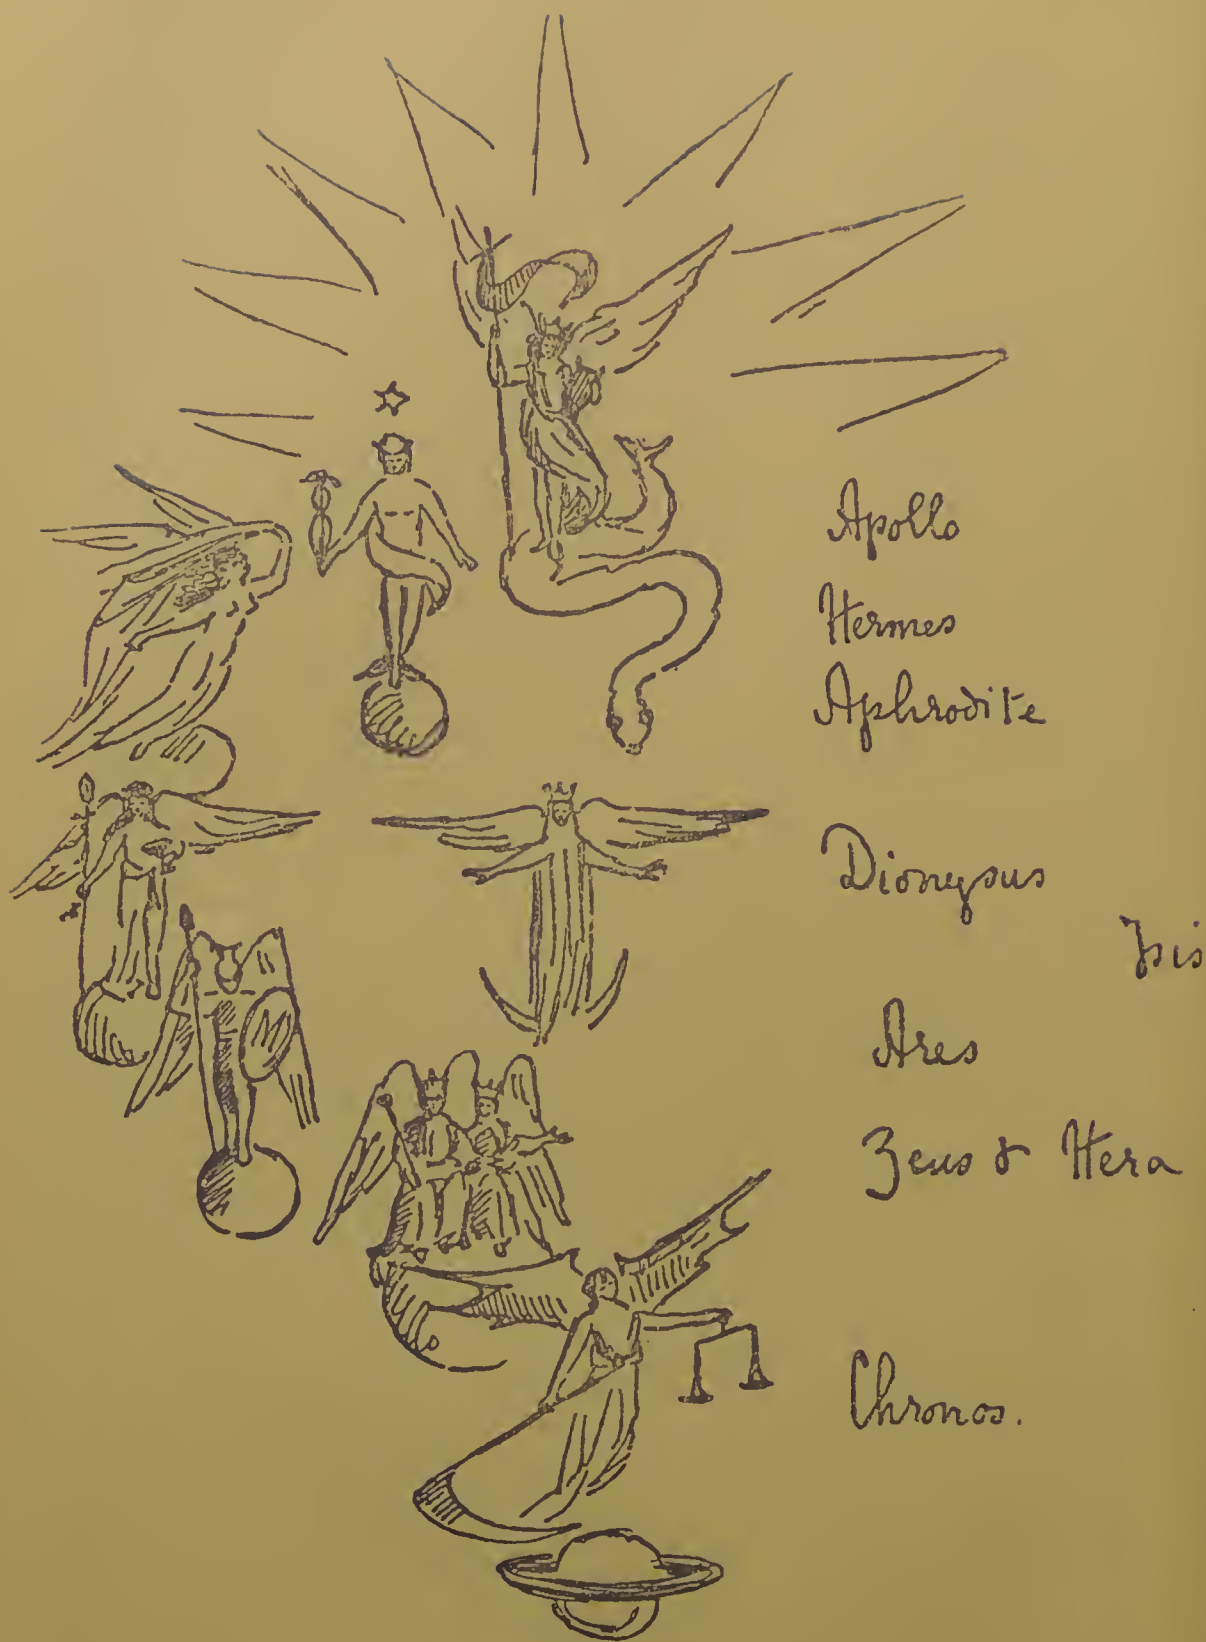 Apollo
Hermes
Aphrodite
Dionysus
Isis
Ares
Zeus & Hera
Chronos.